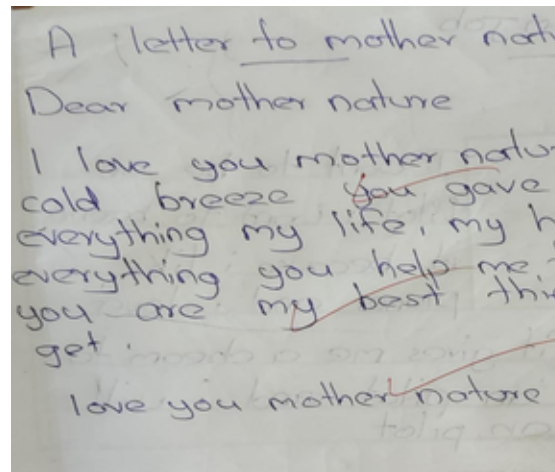 A letter to mother natu
Dear mother nature
I love you mother natu
cold breeze you gave
everything my life, my h
everything you help me
you are my best thi
get.
love you mother nature